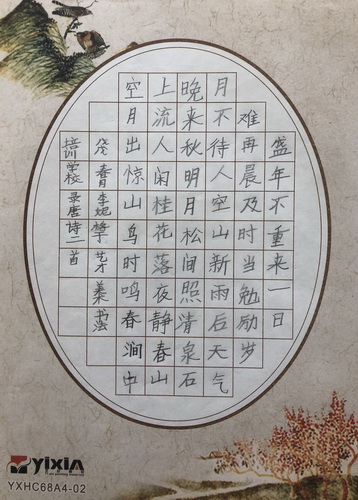 盛年不重来一日
难再晨及时当勉励岁
月不待人空山新雨后天气
晚来秋明月松间照清泉石
上流人闲桂花落夜静春山
空月出惊山鸟时鸣春涧中
春月李妮艺才美术书法
培训学校录唐诗二首
yixin
YXHC68A4-02